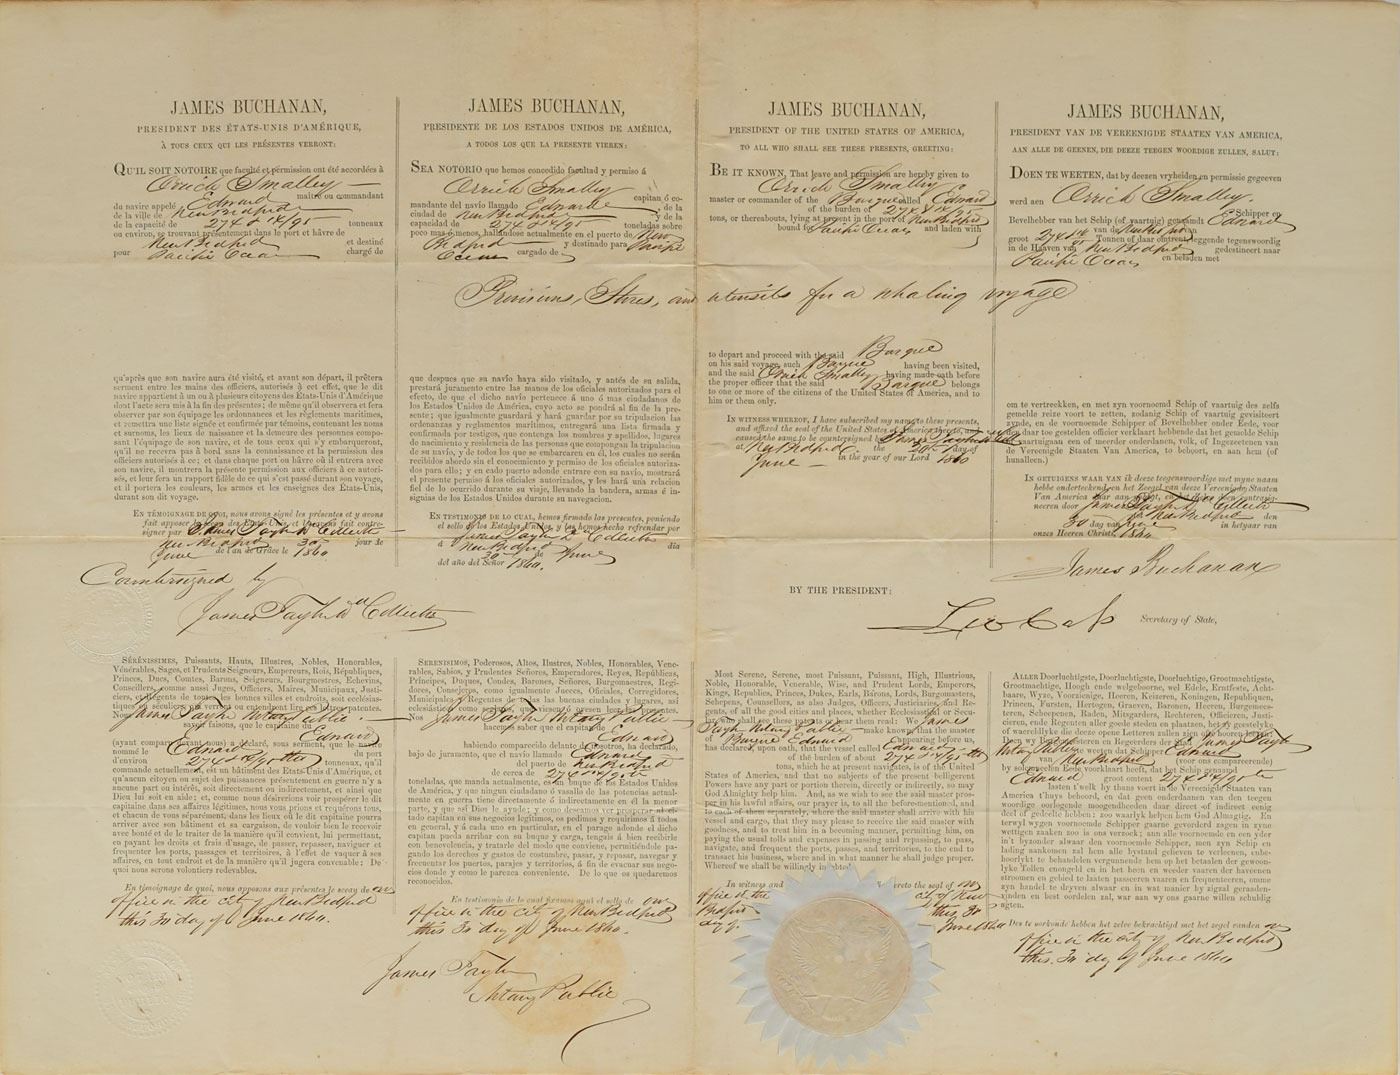 JAMES BUCHANAN,
PRESIDENT DES ÉTATS-UNIS D'AMÉRIQUE,
À TOUS CEUX QUI LES PRÉSENTES VERRONT:
QU'IL SOIT NOTOIRE que faculté et permission ont été accordées à
Orrick Smalley
maître ou commandant
du navire appelé Edward
de la ville de New Bedford
de la capacité de 274 & 14/95 tonneaux
ou environ, se trouvant présentement dans le port et hâvre de
New Bedford et destiné
pour Pacific Ocean chargé de
JAMES BUCHANAN,
PRESIDENTE DE LOS ESTADOS UNIDOS DE AMÉRICA,
A TODOS LOS QUE LA PRESENTE VIEREN:
SEA NOTORIO que hemos concedido facultad y permiso á
Orrick Smalley
capitan ó co-
mandante del navío llamado Edward de la
ciudad de New Bedford y de la
capacidad de 274 & 14/95 toneladas sobre
poco mas ó menos, hallándose actualmente en el puerto de New
Bedford y destinado para Pacific
Ocean cargado de
JAMES BUCHANAN,
PRESIDENT OF THE UNITED STATES OF AMERICA,
TO ALL WHO SHALL SEE THESE PRESENTS, GREETING:
BE IT KNOWN, That leave and permission are hereby given to
Orrick Smalley
master or commander of the Barque called Edward
of the burden of 274 & 14/95
tons, or thereabouts, lying at present in the port of New Bedford
bound for Pacific Ocean and laden with
JAMES BUCHANAN,
PRESIDENT VAN DE VEREENIGDE STAATEN VAN AMERICA,
AAN ALLE DE GEENEN, DIE DEEZE TEEGEN WOORDIGE ZULLEN, SALUT:
DOEN TE WEETEN, dat by deezen vryheid en permissie gegeeven
werd aen Orrick Smalley.
Schipper en
Bevelhebber van het Schip (of vaartuig) genaamdt Edward
van de New Bedford van
groot 274 & 14/95 Tonnen of daar omtrent, leggende tegenswoordig
in de Haaven van New Bedford gedestineert naar
Pacific Ocean en beladen met
Provisions, Stores, and utensils for a whaling voyage
qu'après que son navire aura été visité, et avant son départ, il prêtera
serment entre les mains des officiers, autorisés à cet effet, que le dit
navire appartient à un ou à plusieurs citoyens des États-Unis d'Amérique
dont l'acte sera mis à la fin des présentes; de même qu'il observera et fera
observer par son équipage les ordonnances et les règlements maritimes,
et remettra une liste signée et confirmée par témoins, contenant les noms
et surnoms, les lieux de naissance et la demeure des personnes compo-
sant l'équipage de son navire, et de tous ceux qui s'y embarqueront,
qu'il ne recevra pas à bord sans la connaissance et permission des of-
ficiers autorisés à ce; et dans chaque port ou hâvre où il entrera avec
son navire, il montrera la présente permission aux officiers à ce autori-
sés, et leur fera un rapport fidèle de ce qui s'est passé durant son voyage,
et il portera les couleurs, les armes et les enseignes des États-Unis,
durant son dit voyage.
EN TÉMOIGNAGE DE QUOI, nous avons signé les présentes et y avons
fait apposer le sceau des États-Unis et l'avons fait contre-
signer par James Taylor Collector
New Bedford 30 jour de
June de l'an de Grâce le 1860
que despues que su navío haya sido visitado, y antes de su salida,
prestará juramento entre las manos de los oficiales autorizados para el
efecto, de que el dicho navío pertenece á uno ó mas ciudadanos de
los Estados Unidos de América, cuyo acto se pondrá al fin de la pre-
sente; que igualmente guardará y hará guardar por su tripulacion las
ordenanzas y reglamentos marítimos, entregará una lista firmada y
confirmada por testigos, que contenga los nombres y apellidos, lugares
de nacimiento y residencia de las personas que compongan la tripulacion
de su navío, y de todos los que se embarcaren en él, los cuales no serán
recibidos abordo sin el conocimiento y permiso de los oficiales autoriza-
dos para ello; y en cada puerto adonde entrare con su navío, mostrará
el presente permiso á los oficiales autorizados, y les hará una relacion
fiel de lo ocurrido durante su viaje, llevando la bandera, armas é in-
signias de los Estados Unidos durante su navegacion.
EN TESTIMONIO DE LO CUAL, hemos firmado las presentes, poniendo
el sello de los Estados Unidos, y las hemos hecho refrendar por
James Taylor Collector
á New Bedford dia
30 de June
del año del Señor 1860.
to depart and proceed with the said Barque
on his said voyage, such Barque having been visited,
and the said Orrick Smalley having made oath before
the proper officer that the said Barque belongs
to one or more of the citizens of the United States of America, and to
him or them only.
IN WITNESS WHEREOF, I have subscribed my name to these presents,
and affixed the seal of the United States of America thereto, and
caused the same to be countersigned by James Taylor
at New Bedford the 30th day of
June in the year of our Lord 1860
om te vertreekken, en met zyn voornoemd Schip of vaartuig des zelfs
gemelde reize voort te zetten, zodanig Schip of vaartuig gevisiteert
zynde, en de voornoemde Schipper of Bevelhebber onder Eede, voor
den daar toe gestelden officier verklaart hebbende dat het genoemde Schip
of vaartuig aan een of meerder onderdanen, volk, of Ingezeetenen van
de Vereenigde Staaten Van America, te behoort, en aan hem (of
hunalleen.)
IN GETUIGENS WAAR VAN ik deeze teegenswoordige met myne naam
hebbe onderteekend en het Zeegel van deeze Vereenigde Staaten
Van America daar aan gehegt, en het selve doen contrasig-
neeren door James Taylor Collector
New Bedford den
30 dag van June in hetjaar van
onzes Heeren Christi, 1860
Countersigned by
James Taylor Collector
James Buchanan
BY THE PRESIDENT:
Lew Cass Secretary of State,
SÉRÉNISSIMES, Puissants, Hauts, Illustres, Nobles, Honorables,
Vénérables, Sages, et Prudents Seigneurs, Empereurs, Rois, Républiques,
Princes, Ducs, Comtes, Barons, Seigneurs, Bourgmestres, Echevins,
Conseillers, comme aussi Juges, Officiers, Maires, Municipaux, Justi-
ciers, et Régents de toutes les bonnes villes et endroits, soit ecclésias-
tiques ou séculiers, qui verront ou entendront lire ces lettres patentes.
Nous James Taylor Notary Public
savoir faisons, que le capitaine du Edward
(ayant comparu devant nous) a déclaré, sous serment, que le navire
nommé le Edward du port
d'environ 274 & 14/95ths tonneaux, qu'il
commande actuellement, est un bâtiment des États-Unis d'Amérique, et
qu'aucun citoyen ou sujet des puissances présentement en guerre n'y a
aucune part ou intérêt, soit directement ou indirectement, et ainsi que
Dieu lui soit en aide; et, comme nous désirerions voir prospérer le dit
capitaine dans ses affaires légitimes, nous vous prions et requérons tous
et chacun de vous séparément, dans les lieux où le dit capitaine pourra
arriver avec son bâtiment et sa cargaison, de vouloir bien le recevoir
avec bonté et de le traiter de la manière qu'il convient, lui permettant,
en payant les droits et frais d'usage, de passer, repasser, naviguer et
fréquenter les ports, passages et territoires, à l'effet de vaquer à ses
affaires, en tout endroit et de la manière qu'il jugera convenable: De
quoi nous serons volontiers redevables.
En témoignage de quoi, nous apposons aux présentes le sceau de our
office in the city of New Bedford
this 30 day of June 1860.
SERENISIMOS, Poderosos, Altos, Ilustres, Nobles, Honorables, Vene-
rables, Sabios, y Prudentes Señores, Emperadores, Reyes, Repúblicas,
Príncipes, Duques, Condes, Barones, Señores, Burgomaestres, Regi-
dores, Consejeros, como igualmente Jueces, Oficiales, Corregidores,
Municipales y Regentes de todas las buenas ciudades y lugares, así
eclesiásticos como seglares, que viesen ú oyesen leer las presentes.
Nos James Taylor Notary Public
hacemos saber que el capitan Edward
habiendo comparecido delante de nosotros, ha declarado,
bajo de juramento, que el navío llamado Edward
del puerto de New Bedford
de cerca de 274 & 14/95ths
toneladas, que manda actualmente, es un buque de los Estados Unidos
de América, y que ningun ciudadano ó vasallo de las potencias actual-
mente en guerra tiene directamente ó indirectamente en él la menor
parte, y que así Dios le ayude; y como deseamos ver prosperar al ci-
tado capitan en sus negocios legítimos, os pedimos y requirimos á todos
en general, y á cada uno en particular, en el parage adonde el dicho
capitan pueda arribar con su buque y carga, tengais á bien recibirle
con benevolencia, y tratarle del modo que conviene, permitiéndole pa-
gando los derechos y gastos de costumbre, pasar, y repasar, navegar y
frecuentar los puertos, parajes y territorios, á fin de evacuar sus nego-
cios donde y como le parezca conveniente. De lo que os quedaremos
reconocidos.
En testimonio de lo cual firmamos aquí el sello de our
office in the city of New Bedford
this 30 day of June 1860.
James Taylor
Notary Public
MOST SERENE, Serene, most Puissant, Puissant, High, Illustrious,
Noble, Honorable, Venerable, Wise, and Prudent Lords, Emperors,
Kings, Republics, Princes, Dukes, Earls, Barons, Lords, Burgomasters,
Schepens, Counsellors, as also Judges, Officers, Justiciaries, and Re-
gents, of all the good cities and places, whether Ecclesiastical or Secu-
lar, who shall see these patents or hear them read: We James
Taylor Notary Public make known that the master
of Barque Edward appearing before us,
has declared, upon oath, that the vessel called Edward
of the burden of about 274 & 14/95ths
tons, which he at present navigates, is of the United
States of America, and that no subjects of the present belligerent
Powers have any part or portion therein, directly or indirectly, so may
God Almighty help him. And, as we wish to see the said master pros-
per in his lawful affairs, our prayer is, to all the before-mentioned, and
to each of them separately, where the said master shall arrive with his
vessel and cargo, that they may please to receive the said master with
goodness, and to treat him in a becoming manner, permitting him, on
paying the usual tolls and expenses in passing and repassing, to pass,
navigate, and frequent the ports, passes, and territories, to the end to
transact his business, where and in what manner he shall judge proper.
Whereof we shall be willingly indebted.
In witness and hereto the seal of our
office in the city of New
Bedford this 30
day of June 1860
ALLER Doorluchtigste, Doorluchtigste, Doorluchtige, Grootmachtigste,
Grootmachtige, Hoogh ende welgeboorne, wel Edele, Erntfeste, Acht-
baare, Wyze, Voorzienige, Heeren, Keizeren, Koningen, Republiquen,
Princen, Fursten, Hertogen, Graeven, Baronen, Heeren, Burgemees-
teren, Scheepenen, Raden, Mitsgarders, Rechteren, Officieren, Justi-
cieren, ende Regenten aller goede steden en plaatsen, het zy geestelyke
of waereldlyke die deeze opene Letteren zullen zien ofte hooren leezen:
Doen wy James Taylor
Notary Public weeten dat Schipper Edward
van New Bedford (voor ons compareerende)
by solemneelen Eede voorklaart heeft, dat het Schip genaampt
Edward groot omtent 274 & 14/95ths
lasten t'welk by thans voert in de Vereenigde Staaten van
America t'huys behoord, en dat geen onderdaanen van den teegen
woordige oorlogende moogendheeden daar direct of indirect eenig
deel of gedeelte hebben: zoo waarlyk helpen hem God Almagtig. En
terwyl wygen woorden Schipper gaarne gevorderd zagen in zyne
wettigen zaaken zoo is ons verzoek; aan alle voornoemde en een yder
in't byzonder alwaar den voornoemden Schipper, men zyn Schip en
lading aankomen zal hem alle bystand gelieven te verleenen, en be-
hoorlykt te behandelen vergunnende hem op het betaalen der gewoon-
lyke Tollen omgeld en in het hem en weeder vaaren der haveenen
stroomen en gebied te laaten passeeren vaaren en frequenteeren, omme
zyn handel te dryven alwaar en in wat manier hy zigzal geraaden-
vinden en best oirbaar zal, war aan wy ons gaarne willen schuldig
agten.
Des te oirkonde hebben het zelve bekrachtigd met het zegel van den our
office in the city of New Bedford
this 30 day of June 1860